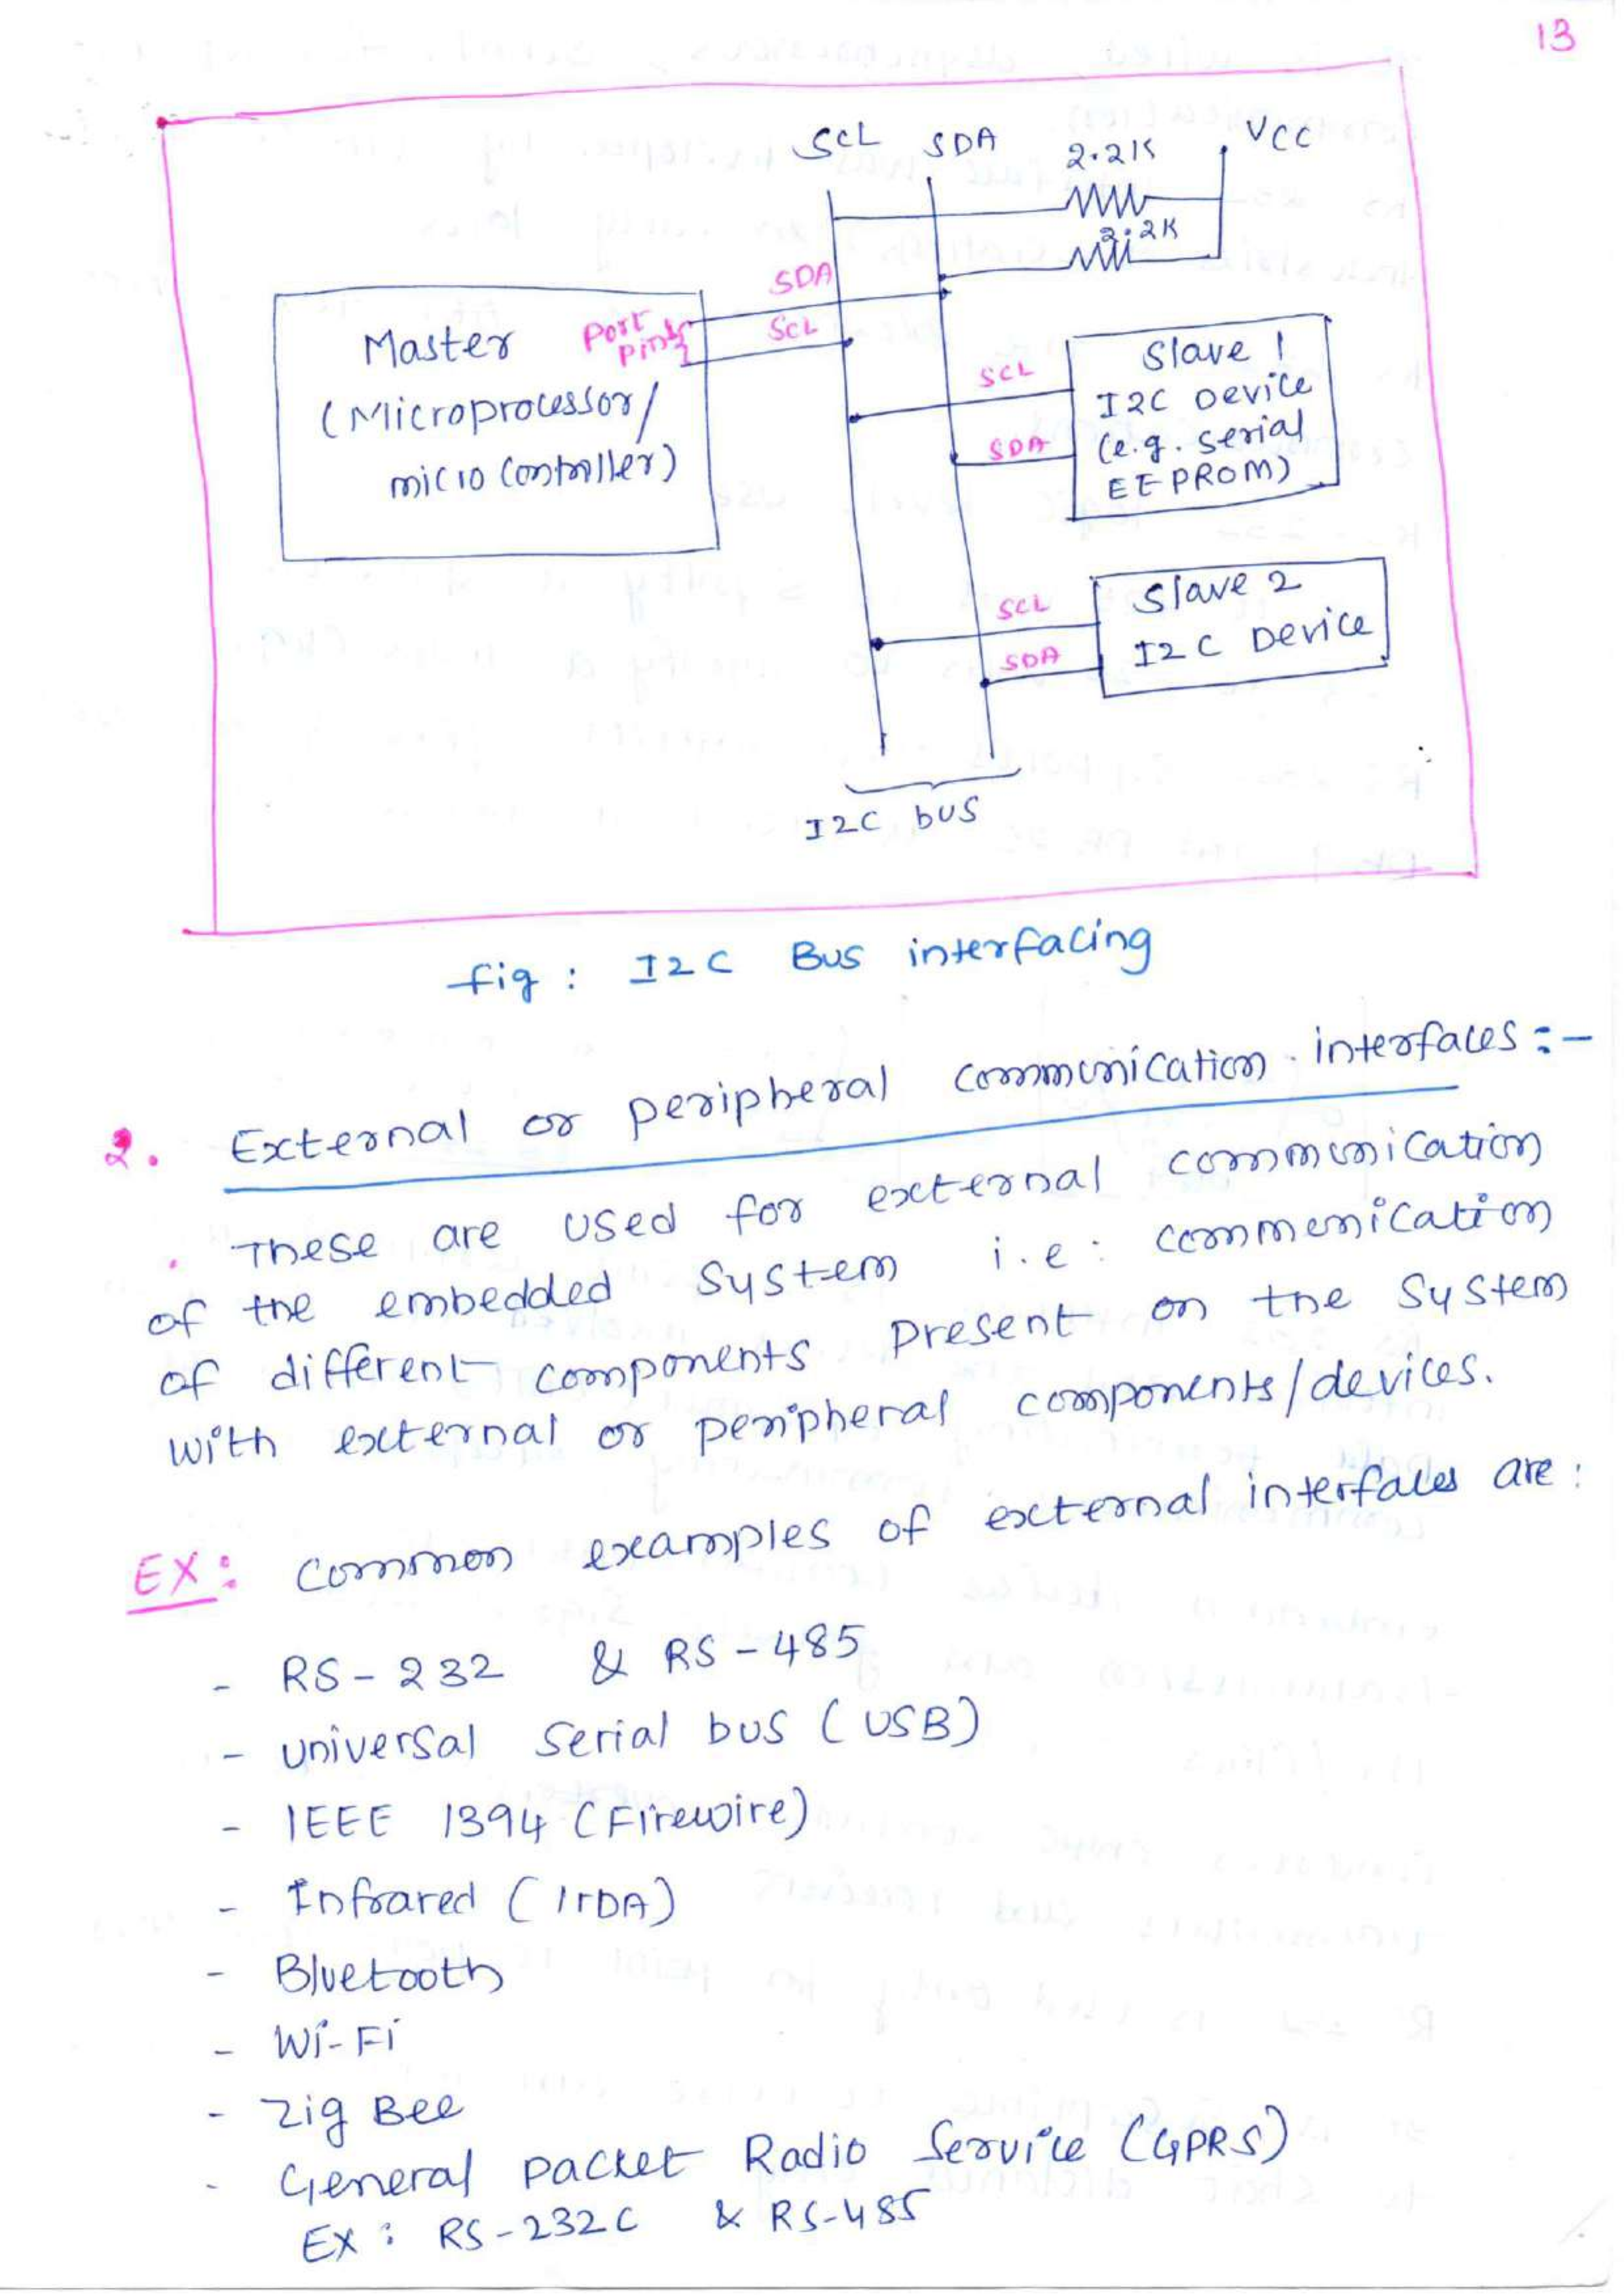 13
SCL SDA VCC
2.2K
2.2K
SDA
SCL
Master
Port
pins
(Microprocessor/
micro controller)
SCL
SDA
Slave 1
I2C Device
(e.g. serial
EEPROM)
SCL
SDA
Slave 2
I2C Device
I2C bus
fig : I2C Bus interfacing
2. External or peripheral communication interfaces :-
. These are used for external communication
of the embedded system i.e: commenication
of different components present on the system
with external or peripheral components/devices.
EX: common examples of external interfaces are:
- RS-232 & RS-485
- universal serial bus (USB)
- IEEE 1394 (Firewire)
- Infrared (IrDA)
- Bluetooth
- Wi-Fi
- Zig Bee
- General packet Radio Service (GPRS)
EX: RS-232C & RS-485